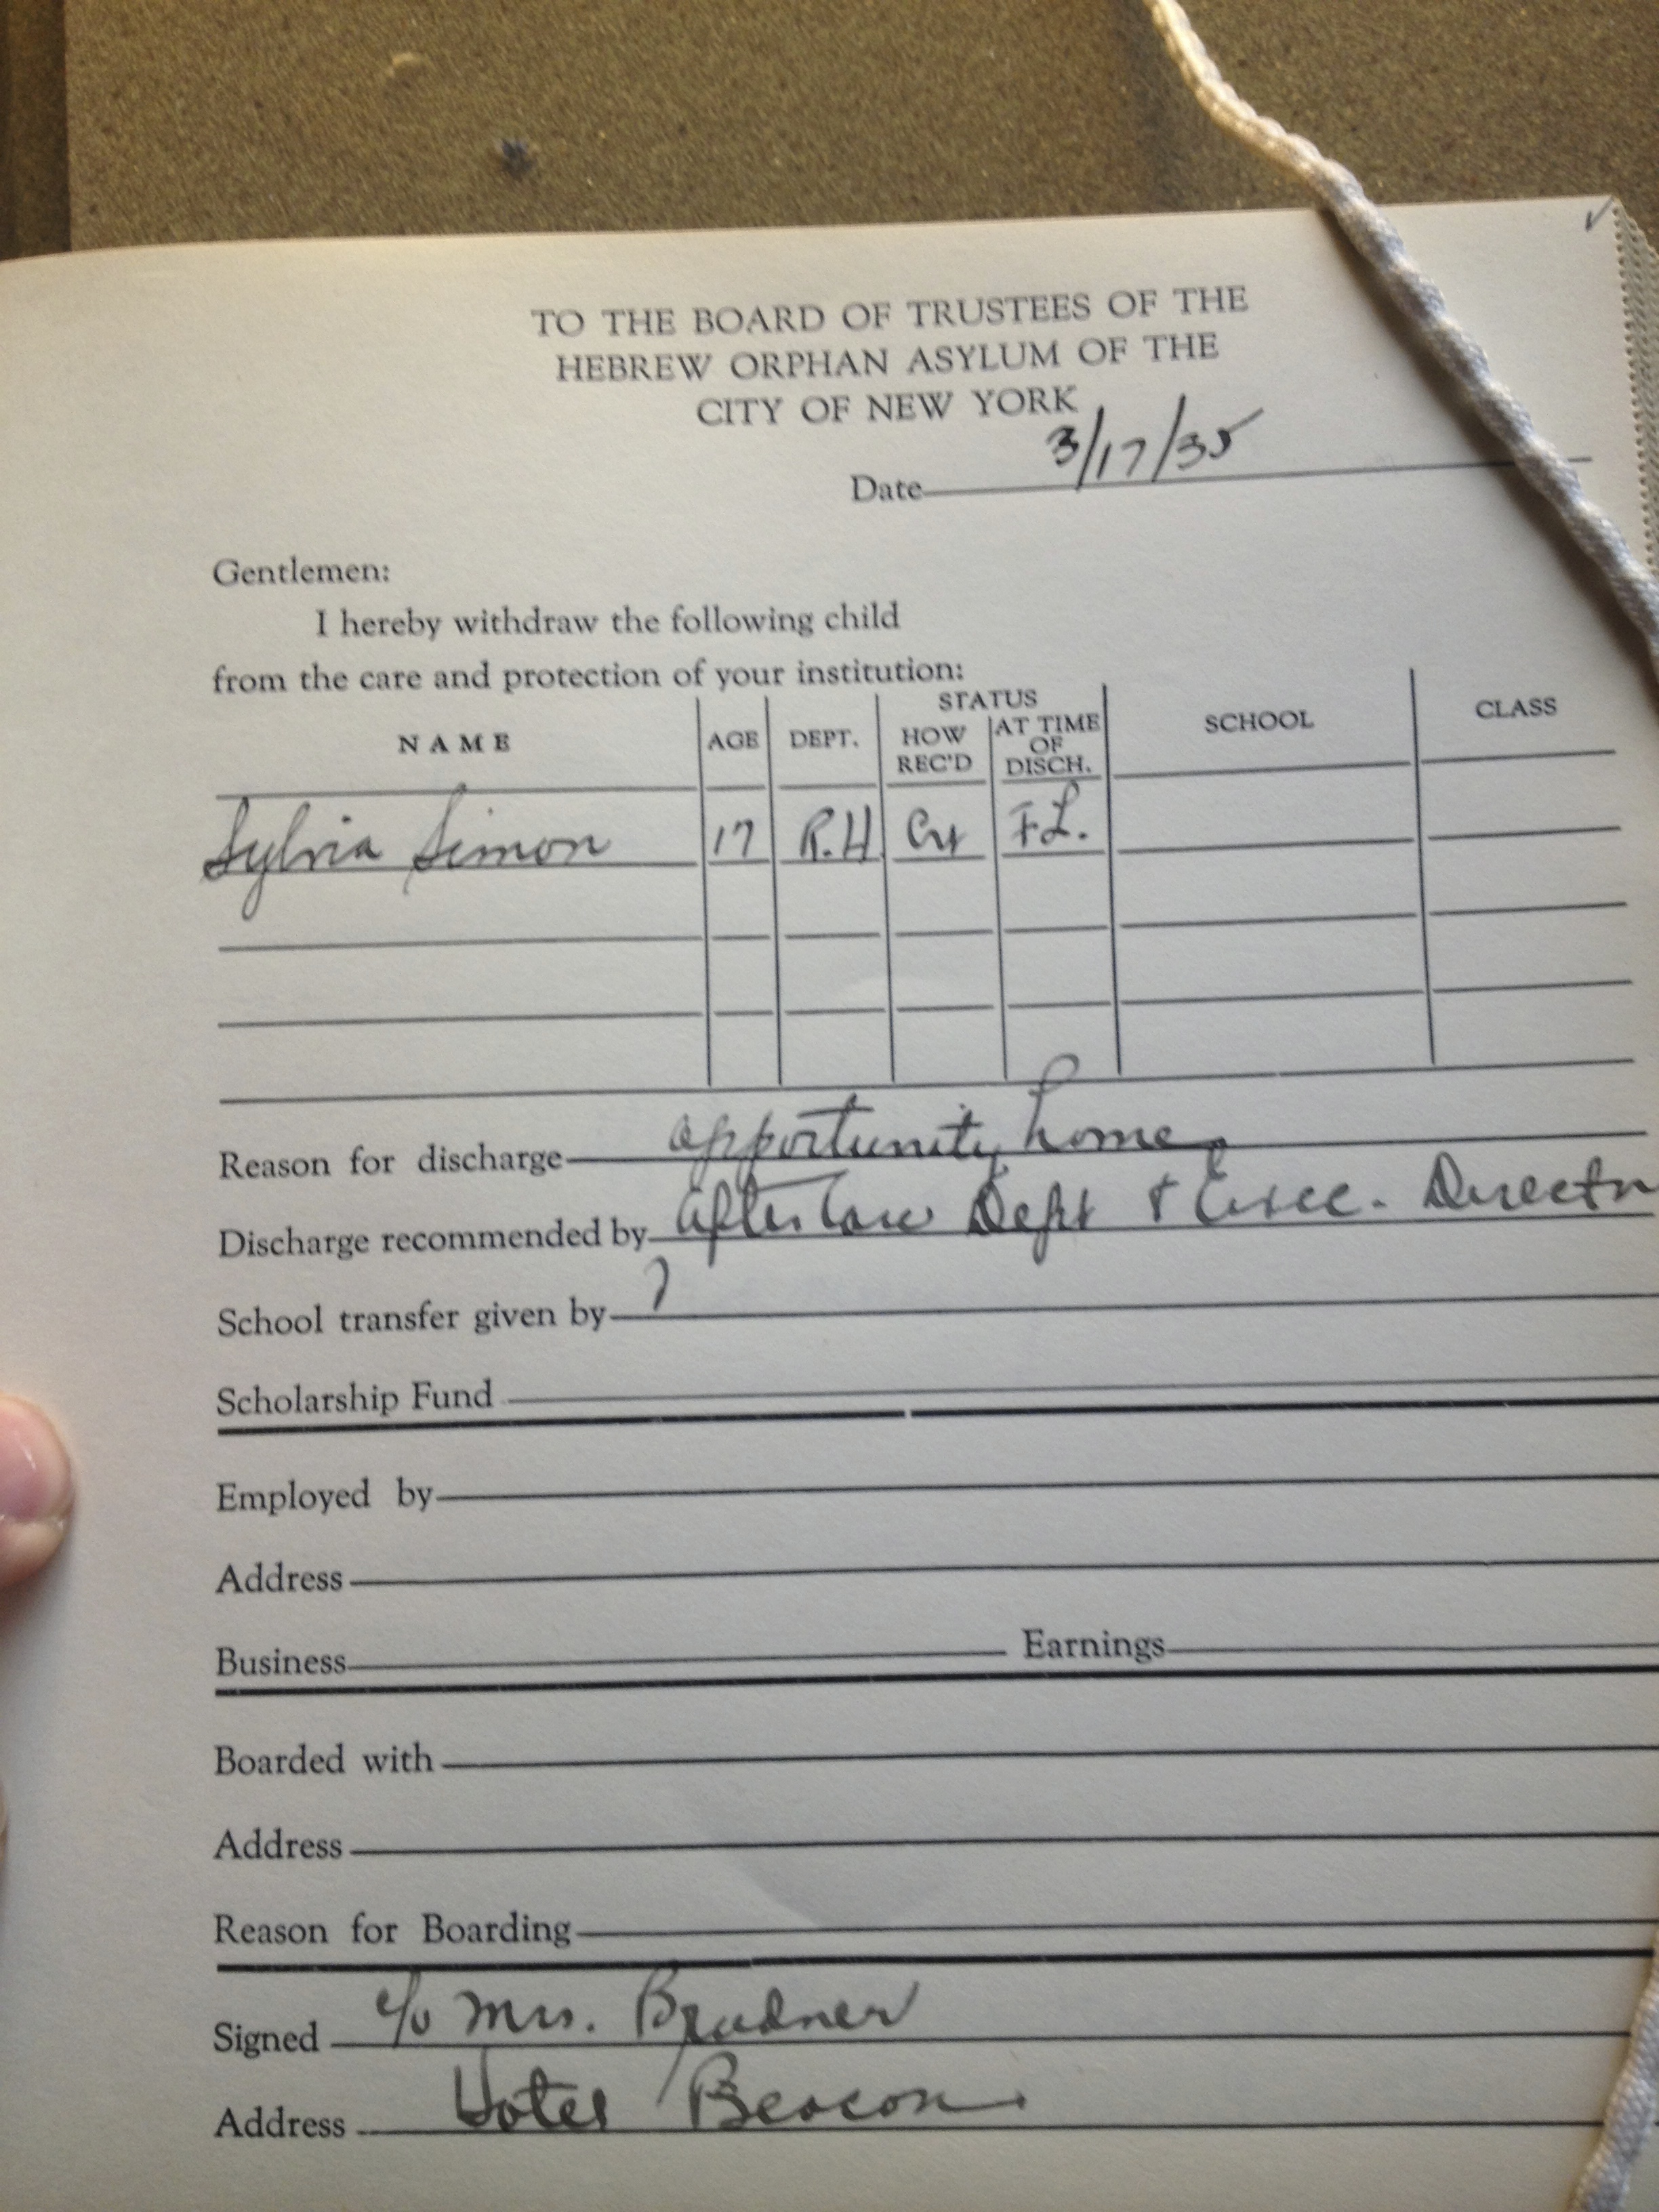 TO THE BOARD OF TRUSTEES OF THE
HEBREW ORPHAN ASYLUM OF THE
CITY OF NEW YORK
Date 3/17/35
Gentlemen:
I hereby withdraw the following child
from the care and protection of your institution:
NAME AGE DEPT. STATUS HOW REC'D AT TIME OF DISCH. SCHOOL CLASS
Sylvia Simon 17 R.H F.L.
Reason for discharge opportunity home
Discharge recommended by After Care Dept & Exec. Director
School transfer given by
Scholarship Fund
Employed by
Address
Business Earnings
Boarded with
Address
Reason for Boarding
Signed c/o Mrs. Brudner
Address Hotel Beacon